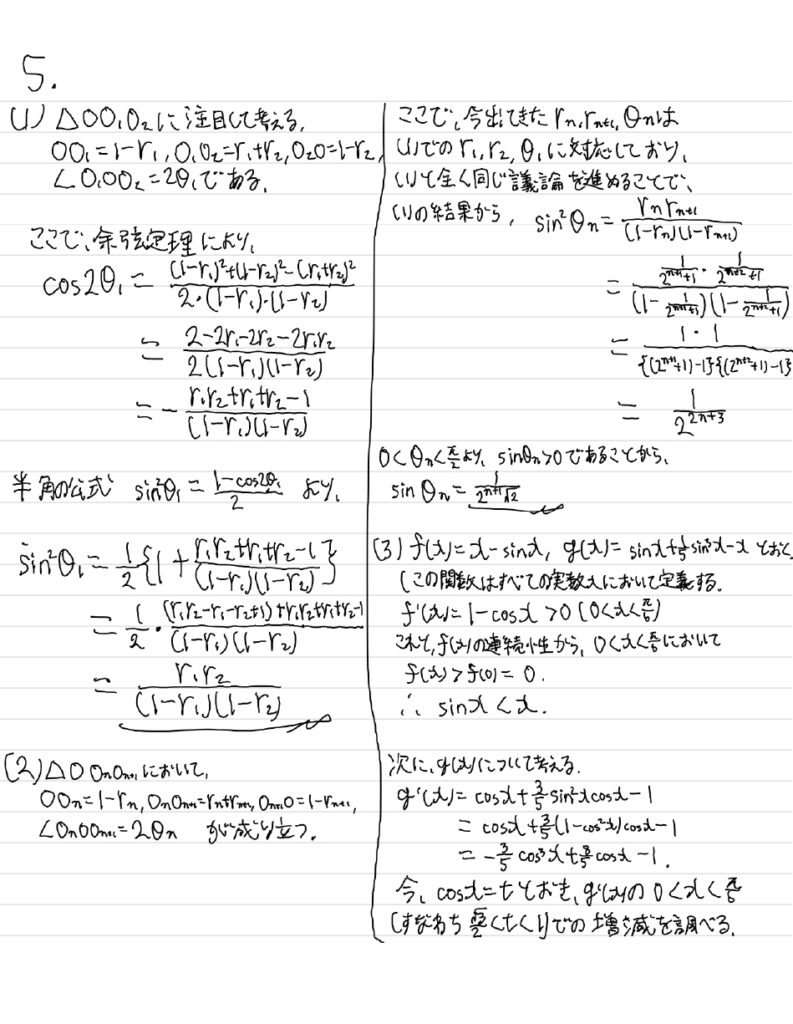 5.
(1) △OO₁O₂に注目して考える.
OO₁=1-r₁, O₁O₂=r₁+r₂, O₂O=1-r₂,
∠O₁OO₂=2θ₁である.
ここで、余弦定理により、
cos2θ₁ = \frac{(1-r₁)²+(1-r₂)²-(r₁+r₂)²}{2・(1-r₁)・(1-r₂)}
= \frac{2-2r₁-2r₂-2r₁r₂}{2(1-r₁)(1-r₂)}
= -\frac{r₁r₂+r₁+r₂-1}{(1-r₁)(1-r₂)}
半角の公式 sin²θ₁ = \frac{1-cos2θ₁}{2} より、
sin²θ₁ = \frac{1}{2}{1+\frac{r₁r₂+r₁+r₂-1}{(1-r₁)(1-r₂)}}
= \frac{1}{2}・\frac{(r₁r₂-r₁-r₂+1)+r₁r₂+r₁+r₂-1}{(1-r₁)(1-r₂)}
= \frac{r₁r₂}{(1-r₁)(1-r₂)}
(2) △OOₙOₙ₊₁において、
OOₙ=1-rₙ, OₙOₙ₊₁=rₙ+rₙ₊₁, Oₙ₊₁O=1-rₙ₊₁,
∠OₙOOₙ₊₁=2θₙ が成り立つ.
ここで、今出てきた rₙ, rₙ₊₁, θₙは
(1)での r₁, r₂, θ₁に対応しており、
(1)と全く同じ議論を進めることで、
(1)の結果から, sin²θₙ = \frac{rₙrₙ₊₁}{(1-rₙ)(1-rₙ₊₁)}
= \frac{\frac{1}{2^{n+1}+1}・\frac{1}{2^{n+2}+1}}{(1-\frac{1}{2^{n+1}+1})(1-\frac{1}{2^{n+2}+1})}
= \frac{1・1}{{(2^{n+1}+1)-1}{(2^{n+2}+1)-1}}
= \frac{1}{2^{2n+3}}
0<θₙ<\frac{π}{2}より, sinθₙ>0であることから、
sinθₙ = \frac{1}{2^{n+1}√2}
(3) f(x)=x-sinx, g(x)=sinx+\frac{1}{5}sin³x-x とおく
(この関数はすべての実数xにおいて定義する.
f'(x)=1-cosx>0 (0<x<\frac{π}{6})
これと, f(x)の連続性から, 0<x<\frac{π}{6}において
f(x)>f(0)=0.
∴ sinx<x.
次に, g(x)について考える.
g'(x)=cosx+\frac{3}{5}sin²xcosx-1
=cosx+\frac{3}{5}(1-cos²x)cosx-1
=-\frac{3}{5}cos³x+\frac{8}{5}cosx-1.
今、cosx=tとおき, g'(x)の 0<x<\frac{π}{6}
(すなわち \frac{√3}{2}<t<1)での増減を調べる.